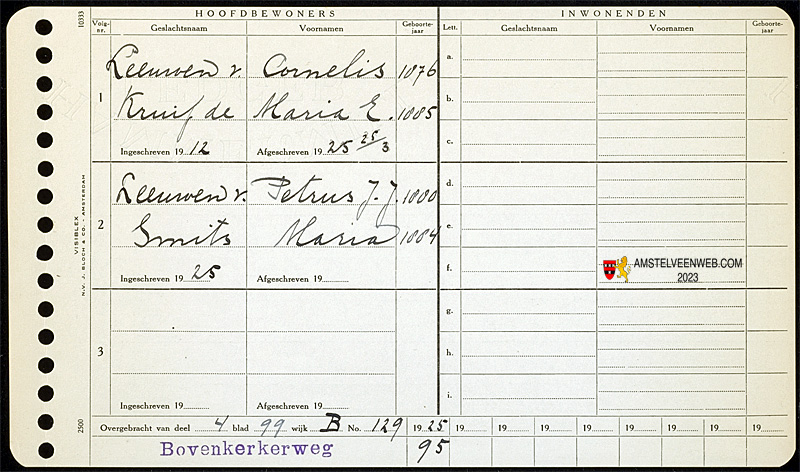 10333
HOOFDBEWONERS
INWONENDEN
Volg-nr. Geslachtsnaam Voornamen Geboorte-jaar Lett. Geslachtsnaam Voornamen Geboorte-jaar
Leeuwen v. Cornelis 1876
1 Kruif de Maria E. 1885
Ingeschreven 19 12 Afgeschreven 19 25 25/3
Leeuwen v. Petrus J. J. 1880
2 Smits Maria 1884
Ingeschreven 19 25 Afgeschreven 19
3
Ingeschreven 19 Afgeschreven 19
a.
b.
c.
d.
e.
f.
g.
h.
i.
AMSTELVEENWEB.COM
2023
VISIBLEX
N.V. J. BLOCH & CO. - AMSTERDAM
2500
Overgebracht van deel 4 blad 99 wijk B No. 129 19 25 19 19 19 19 19 19 19 19
Bovenkerkerweg 95